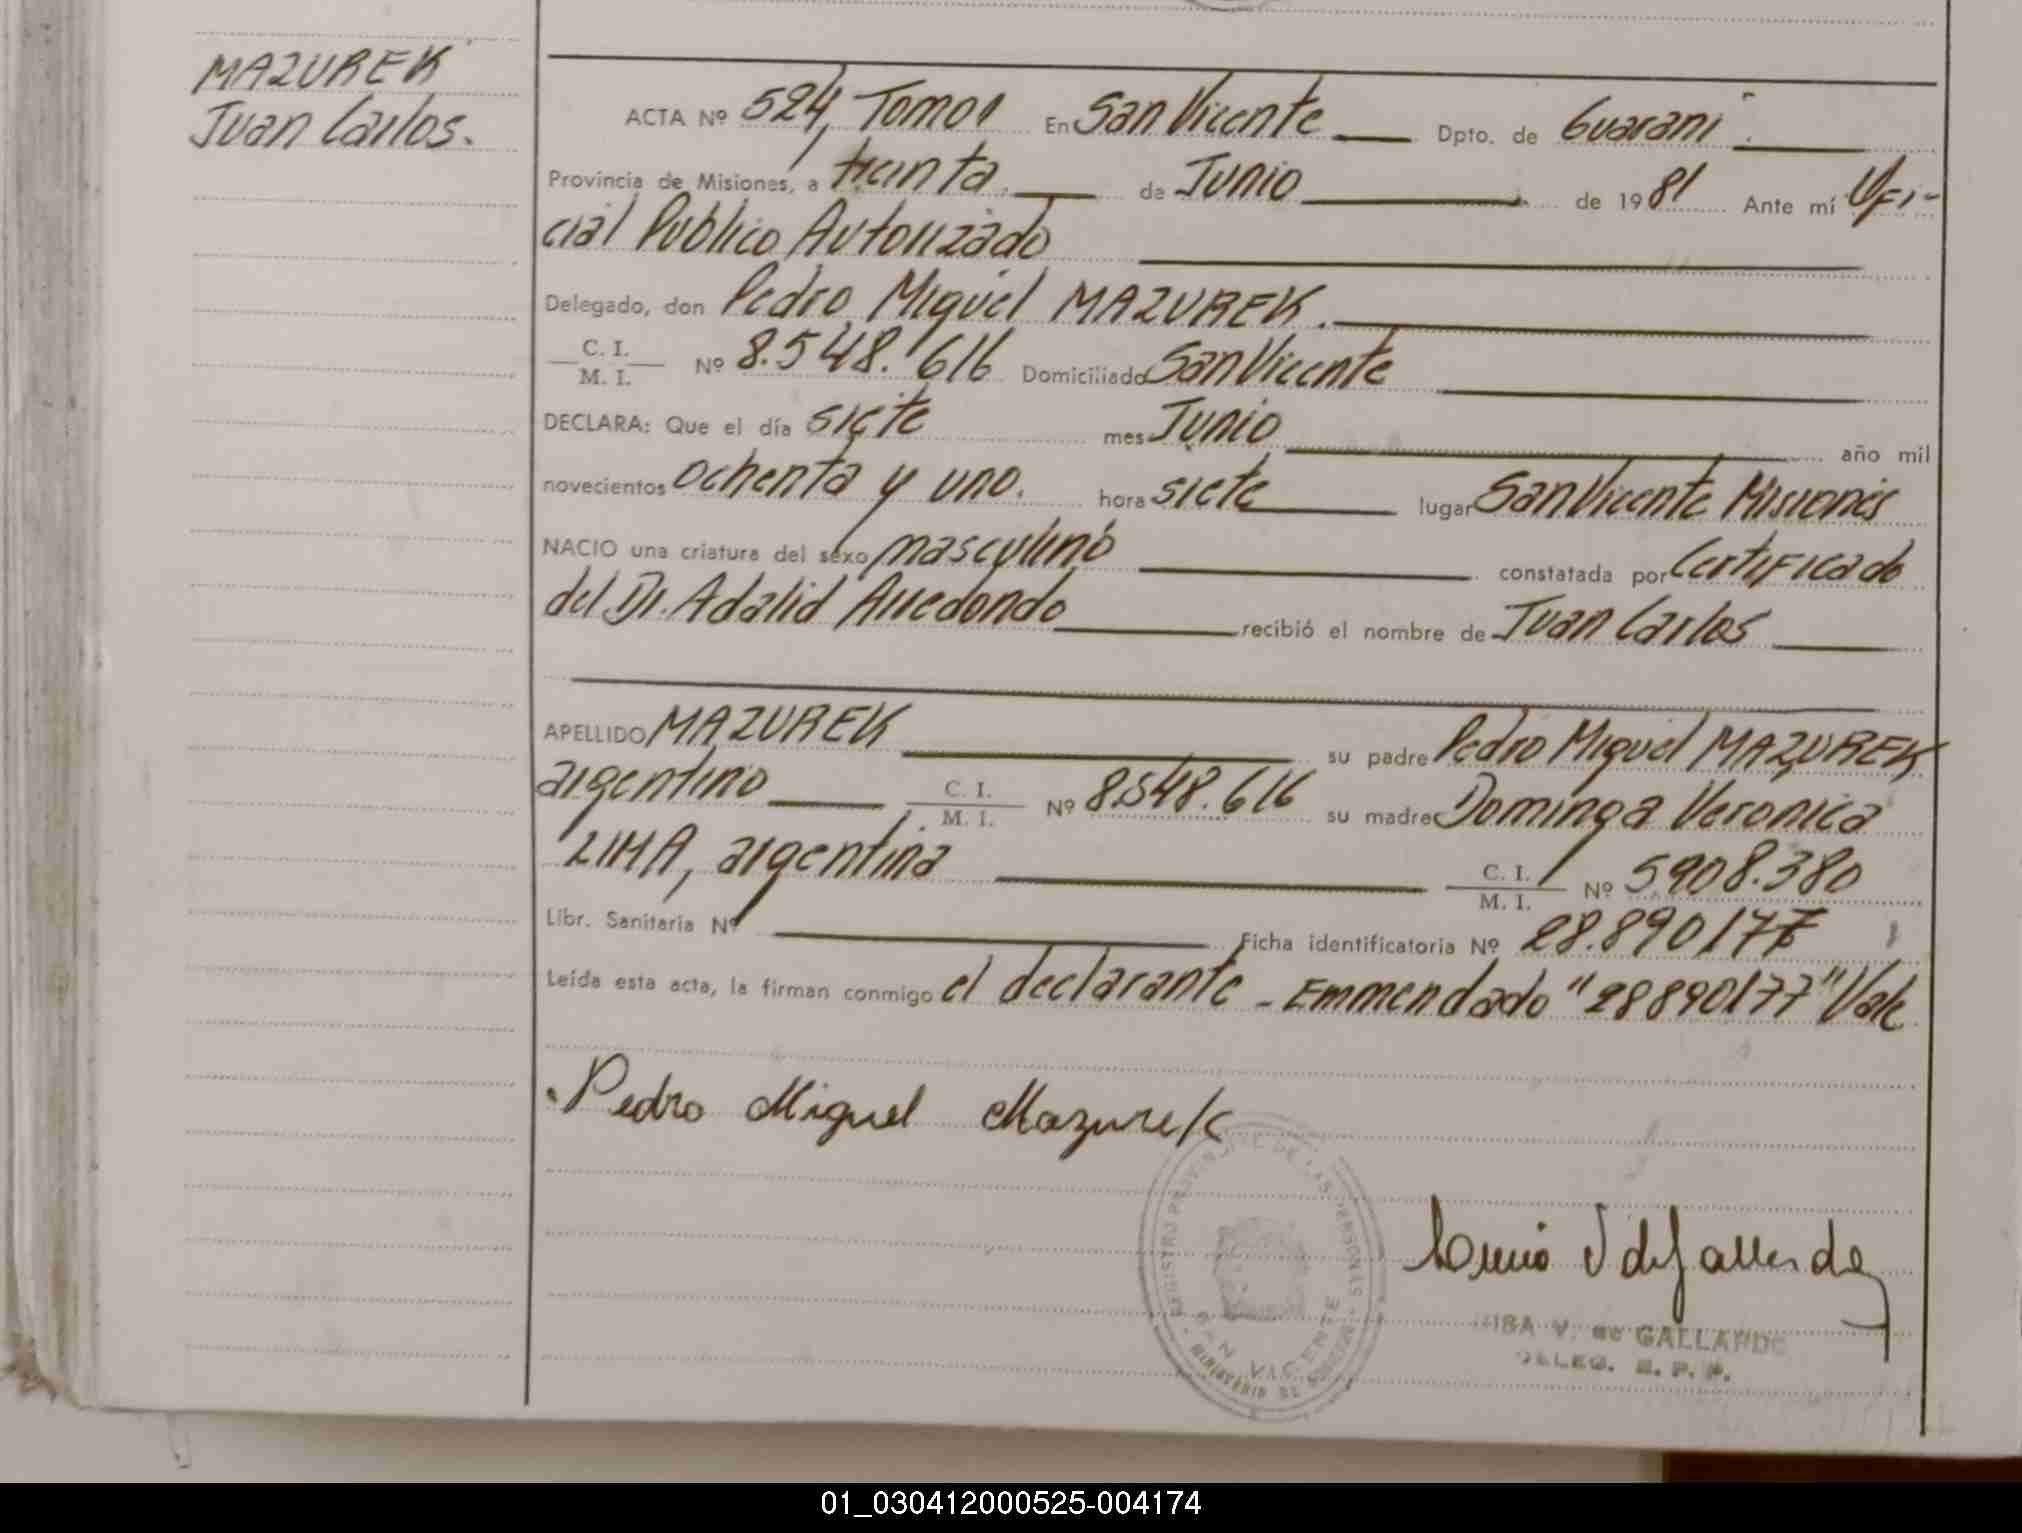 MAZUREK
Juan Carlos.
ACTA Nº 524, Tomo I En San Vicente Dpto. de Guaraní.
Provincia de Misiones, a treinta de Junio de 1981 Ante mí Ofi-
cial Público Autorizado
Delegado, don Pedro Miguel MAZUREK.
C. I.
M. I. Nº 8.548.616 Domiciliado San Vicente
DECLARA: Que el día siete mes Junio año mil
novecientos ochenta y uno. hora siete lugar San Vicente Misiones
NACIO una criatura del sexo masculino constatada por Certificado
del Dr. Adalid Arredondo recibió el nombre de Juan Carlos
APELLIDO MAZUREK su padre Pedro Miguel MAZUREK
argentino C. I. M. I. Nº 8.548.616 su madre Dominga Veronica
LIMA, argentina C. I. M. I. Nº 5.908.380
Libr. Sanitaria Nº Ficha identificatoria Nº 28.890177
Leída esta acta, la firman conmigo el declarante - Emmendado "28890177" Vale
Pedro Miguel Mazurek
REGISTRO PROVINCIAL DE LAS PERSONAS
SAN VICENTE
MINISTERIO DE
V. de GALLARDO
DELEG. R. P. P.
01_030412000525-004174